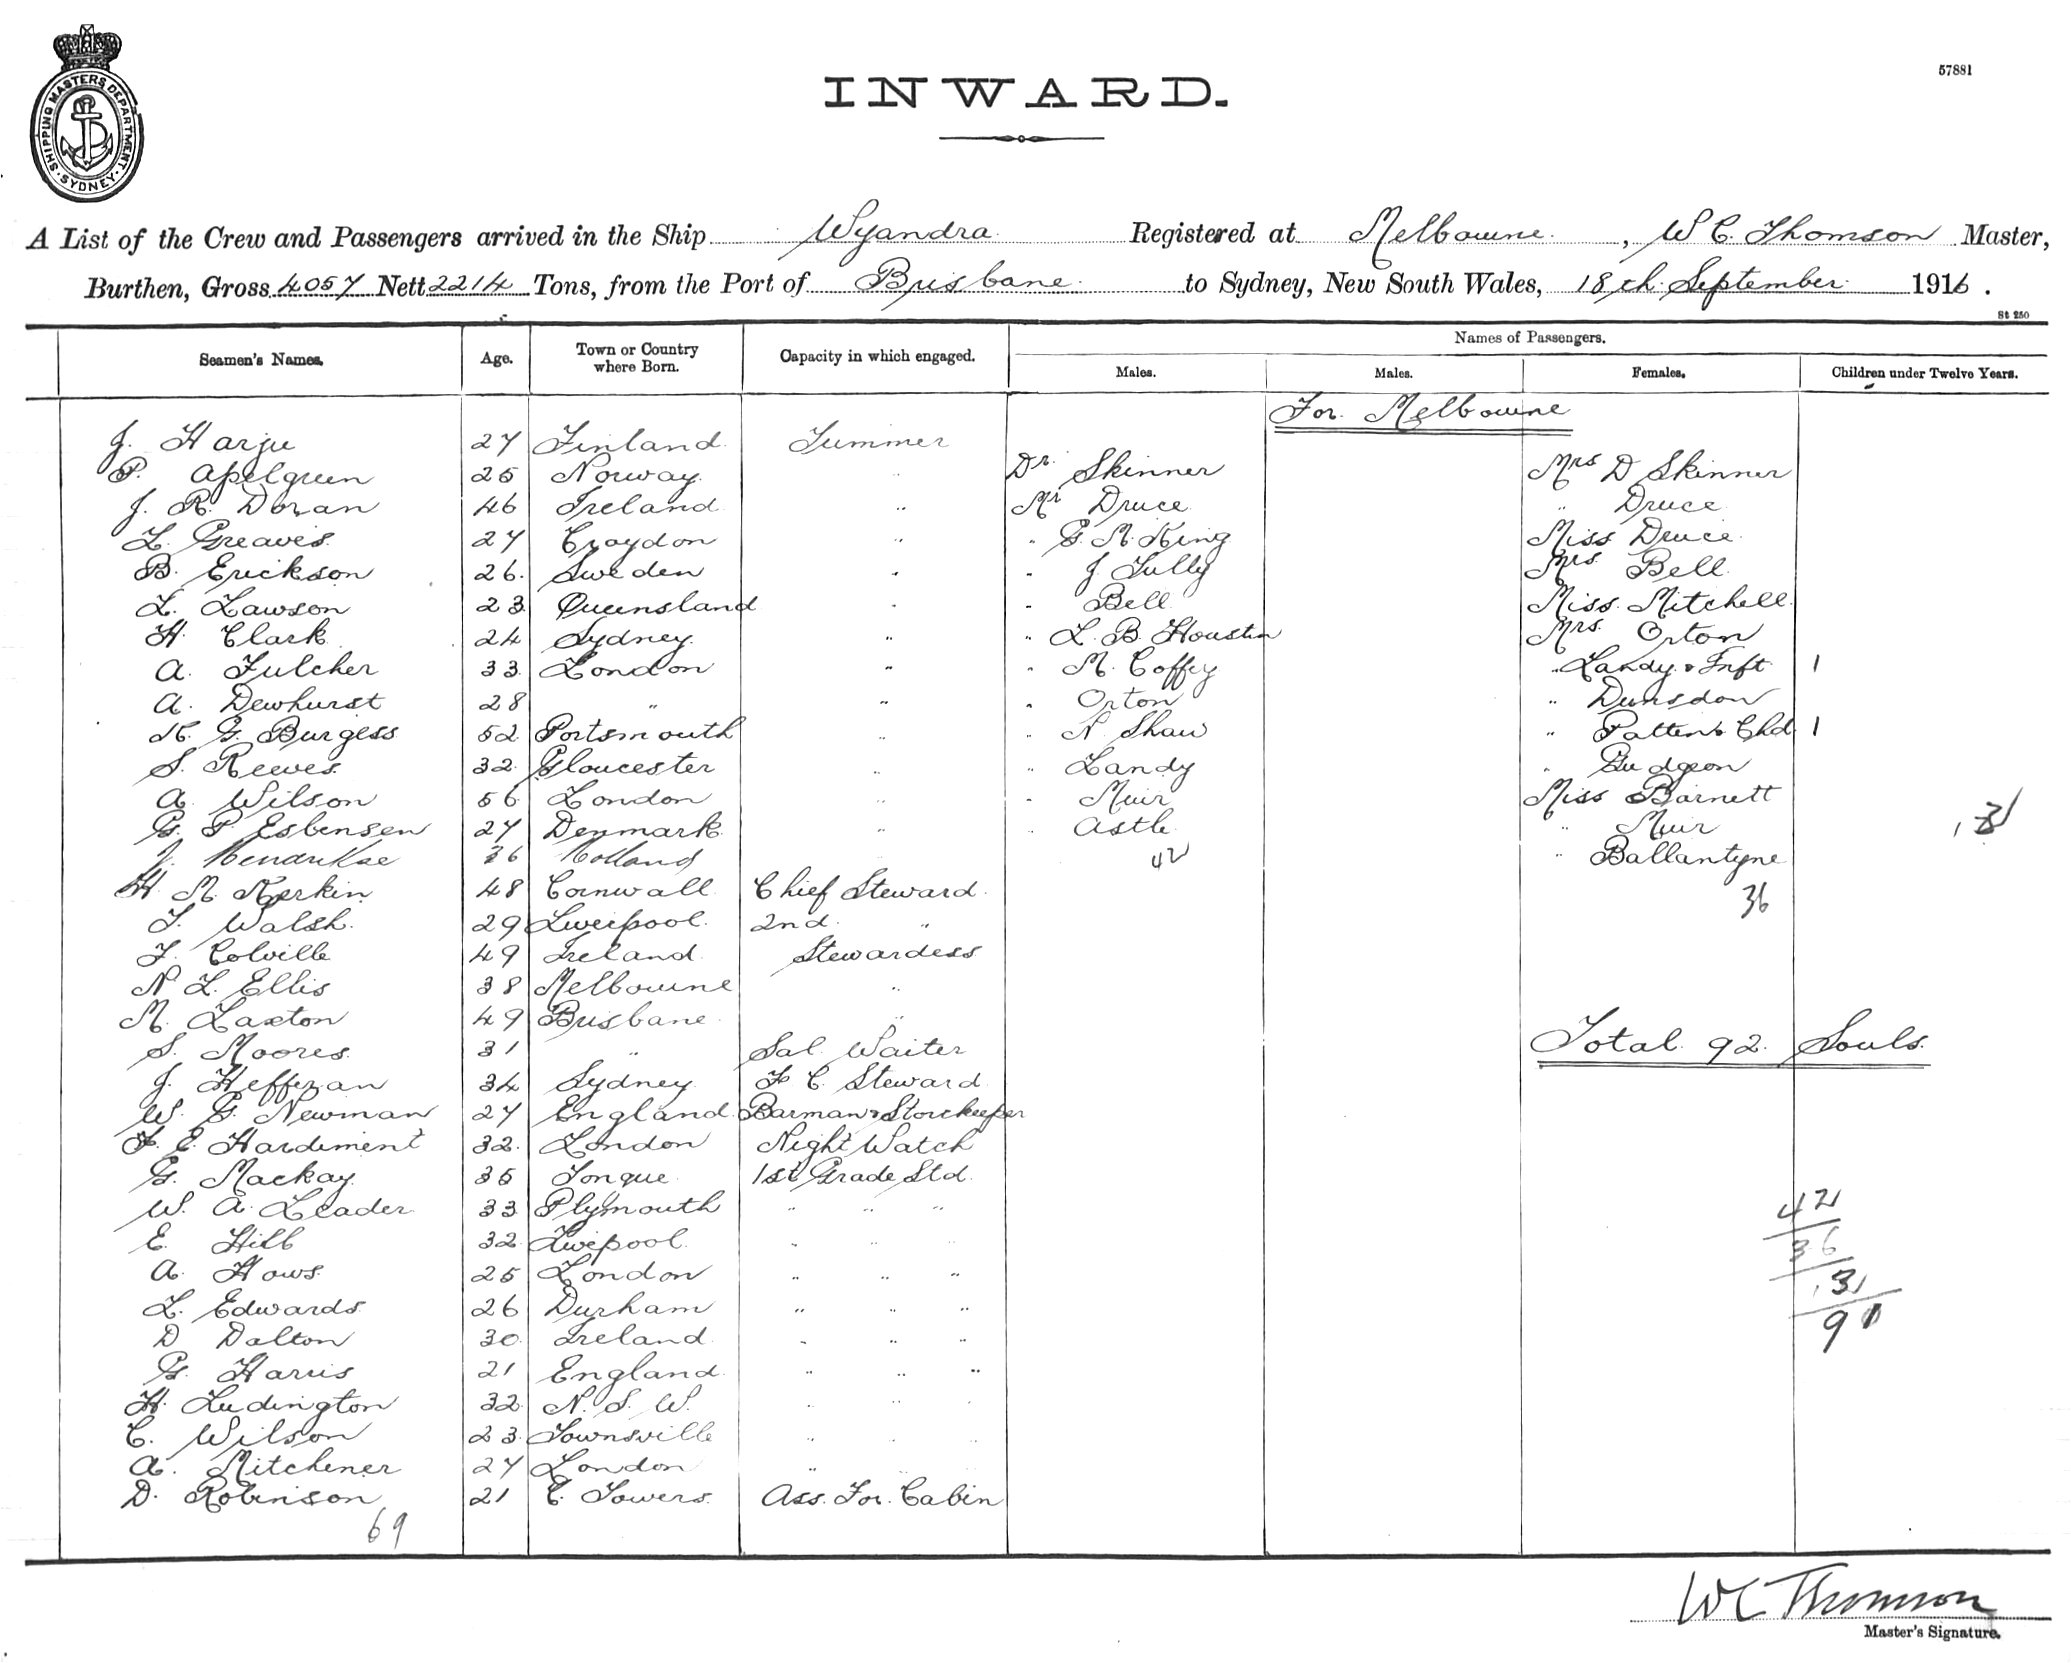 SHIPPING MASTERS DEPARTMENT
SYDNEY
57881
INWARD.
A List of the Crew and Passengers arrived in the Ship Wyandra Registered at Melbourne, W C. Thomson Master,
Burthen, Gross 4057 Nett 2214 Tons, from the Port of Brisbane to Sydney, New South Wales, 18th September 1916.
St 250
Seamen's Names. Age. Town or Country where Born. Capacity in which engaged. Names of Passengers.
Males. Males. Females. Children under Twelve Years.
For Melbourne
J. Harju 27 Finland Tummer
P. Apelgreen 25 Norway " Dr. Skinner Mrs D Skinner
J. R. Doran 46 Ireland " Mr Druce " Druce
L. Greaves 27 Croydon " " G. M. King Miss Druce
B. Erickson 26 Sweden " " J Tully Mrs. Bell
L. Lawson 23 Queensland " " Bell Miss. Mitchell
H. Clark 24 Sydney " " L. B. Houstin Mrs. Orton
A. Fulcher 33 London " " M. Coffey " Landy & Inft 1
A. Dewhurst 28 " " " Orton " Dunsdon
G. Burgess 52 Portsmouth " " N. Shaw " Patten & Chd 1
S. Reeves 32 Gloucester " " Landy " Gudgeon
A. Wilson 56 London " " Muir Miss Barnett
G. P. Esbensen 27 Denmark " " Astle " Muir
J. Hendrikse 36 Holland 42 " Ballantyne
H. M. Kerkin 48 Cornwall Chief Steward 36
T. Walsh 29 Liverpool 2nd "
F. Colville 49 Ireland Stewardess
N L. Ellis 38 Melbourne "
M. Laxton 49 Brisbane "
Total 92 Souls.
S. Moores 31 " Sal Waiter
J. Heffernan 34 Sydney F C. Steward
W. G. Newman 27 England Barman & Storekeeper
F. E. Hardiment 32 London Night Watch
G. Mackay 35 Tongue 1st Grade Std.
W. A. Leader 33 Plymouth " " "
42
E. Hill 32 Liverpool " " "
36
A. Hows 25 London " " "
13
L. Edwards 26 Durham " " "
91
D Dalton 30 Ireland " " "
G. Harris 21 England " " "
H. Ludington 32 N. S. W. " " "
C. Wilson 23 Townsville " " "
A. Mitchener 27 London " " "
D. Robinson 21 C. Towers Ass. For. Cabin
69
W C Thomson
Master's Signature.